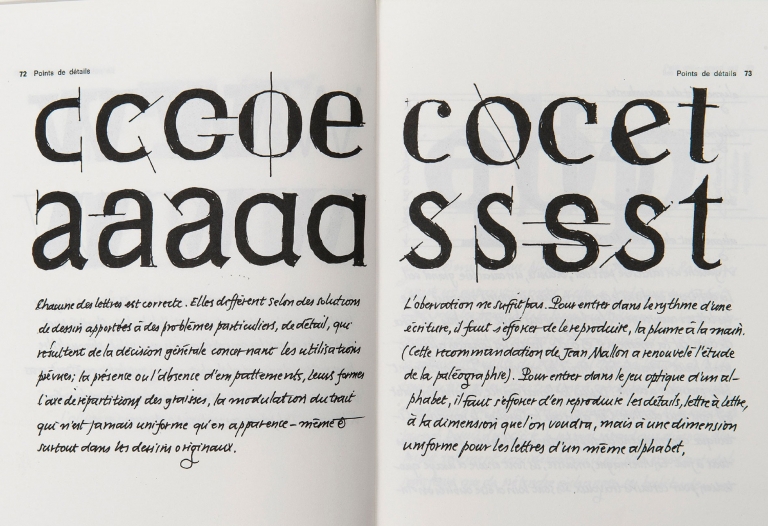 72 Points de détails
ccGoe
aaaaa
Chacune des lettres est correcte. Elles diffèrent selon des solutions
de dessin apportées à des problèmes particuliers, de détail, qui
résultent de la décision générale concernant les utilisations
prévues; la présence ou l'absence d'empattements, leurs formes
l'axe de répartitions des graisses, la modulation du trait
qui n'est jamais uniforme qu'en apparence – même
surtout dans les dessins originaux.
Points de détails 73
cocet
sssst
L'obervation ne suffit pas. Pour entrer dans le rythme d'une
écriture, il faut s'éfforcer de le reproduire, la plume à la main.
(Cette recommandation de Jean Mallon a renouvelé l'étude
de la paléographie). Pour entrer dans le jeu optique d'un al-
phabet, il faut s'efforcer d'en reproduire les détails, lettre à lettre,
à la dimension que l'on voudra, mais à une dimension
uniforme pour les lettres d'un même alphabet,